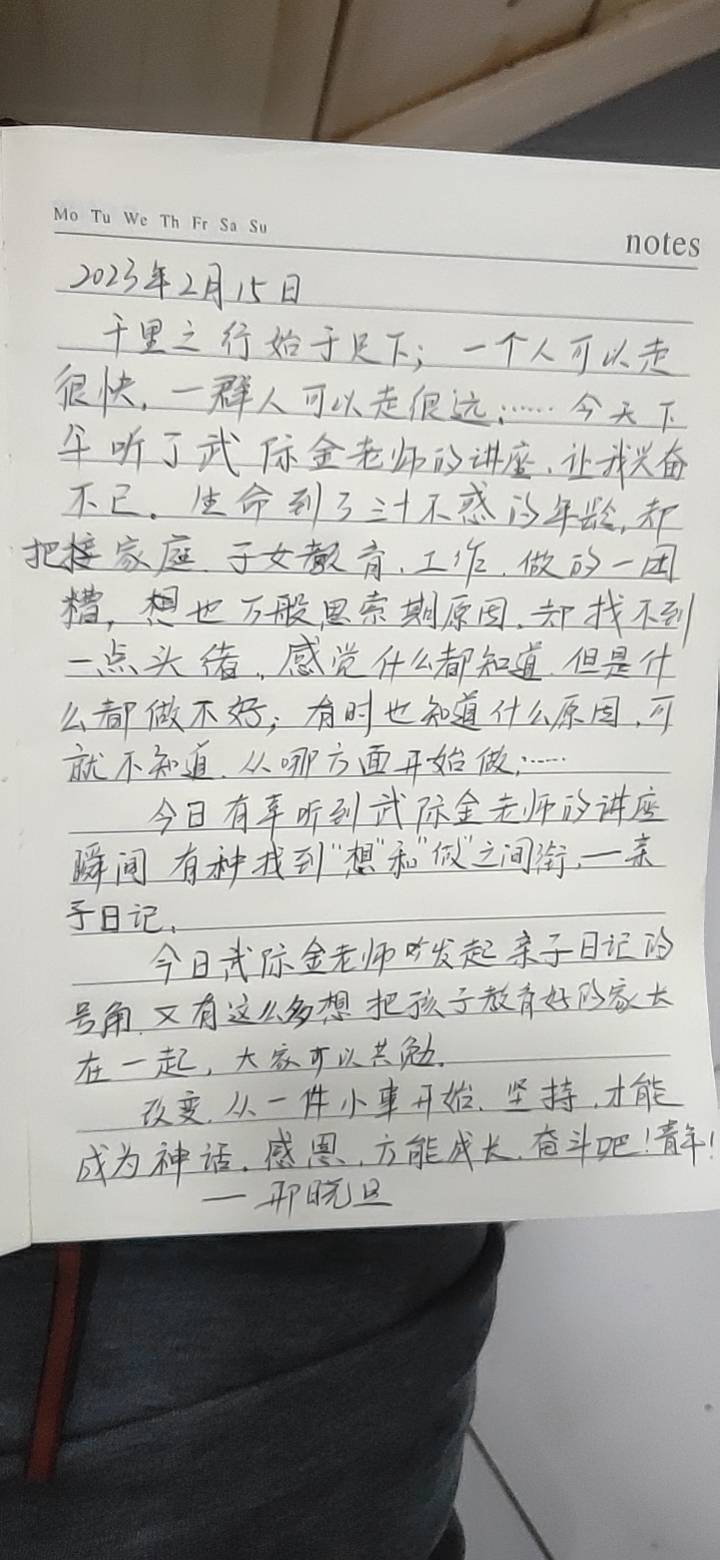 Mo Tu We Th Fr Sa Su
notes
2023年2月15日
千里之行始于足下；一个人可以走
很快，一群人可以走很远；……今天下
午听了武际金老师的讲座、让我兴奋
不已。生命到了三十不惑的年龄，却
把接家庭、子女教育、工作、做的一团
糟，想也万般思索期原因，却找不到
一点头绪，感觉什么都知道、但是什
么都做不好；有时也知道什么原因，可
就不知道、从哪方面开始做；……
今日有幸听到武际金老师的讲座
瞬间 有种找到“想”和“做”之间衔，一亲
子日记、
今日武际金老师吹发起亲子日记的
号角、又有这么多想把孩子教育好的家长
在一起，大家可以共勉、
改变、从一件小事开始、坚持、才能
成为神话。感恩、方能成长、奋斗吧！青年！
— 邢晓旦